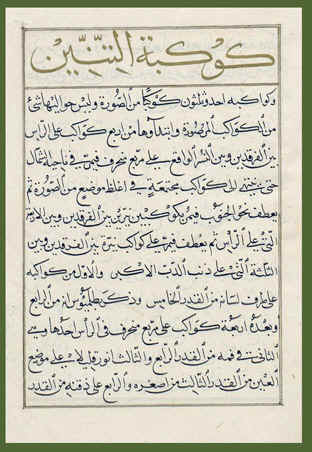 كوكبة التنين
وكواكبه احد وثلثون كوكبًا من الصورة وليس حواليها شئ
من الكواكب المرصودة وابتداوها من اربع كواكب على الراس
بين الفرقدين وبين النسر الواقع على مربع منحرف فيمر في ناحية الشمال
حتى ينتهى الى كواكب مجتمعة في اغلظ موضع من الصورة ثم
يعطف نحو الجنوب فيمر بكوكبين نيرين بين الفرقدين وبين الاربعة
التى على الراس ثم يعطف فيمر على كواكب نيرة بين الفرقدين وبين
الثلثة التى على ذنب الدب الاكبر والاول من كواكبه
على طرف لسانه من القدر الخامس وذكر بطلميوس انه من الرابع
وبعده اربعة كواكب على مربع منحرف في الراس احدها وهو
الثانى في فمه من القدر الرابع والثالث انور قليلا وهو على موضع
العين من القدر الثالث من اصغره والرابع على ذقنه من القدر